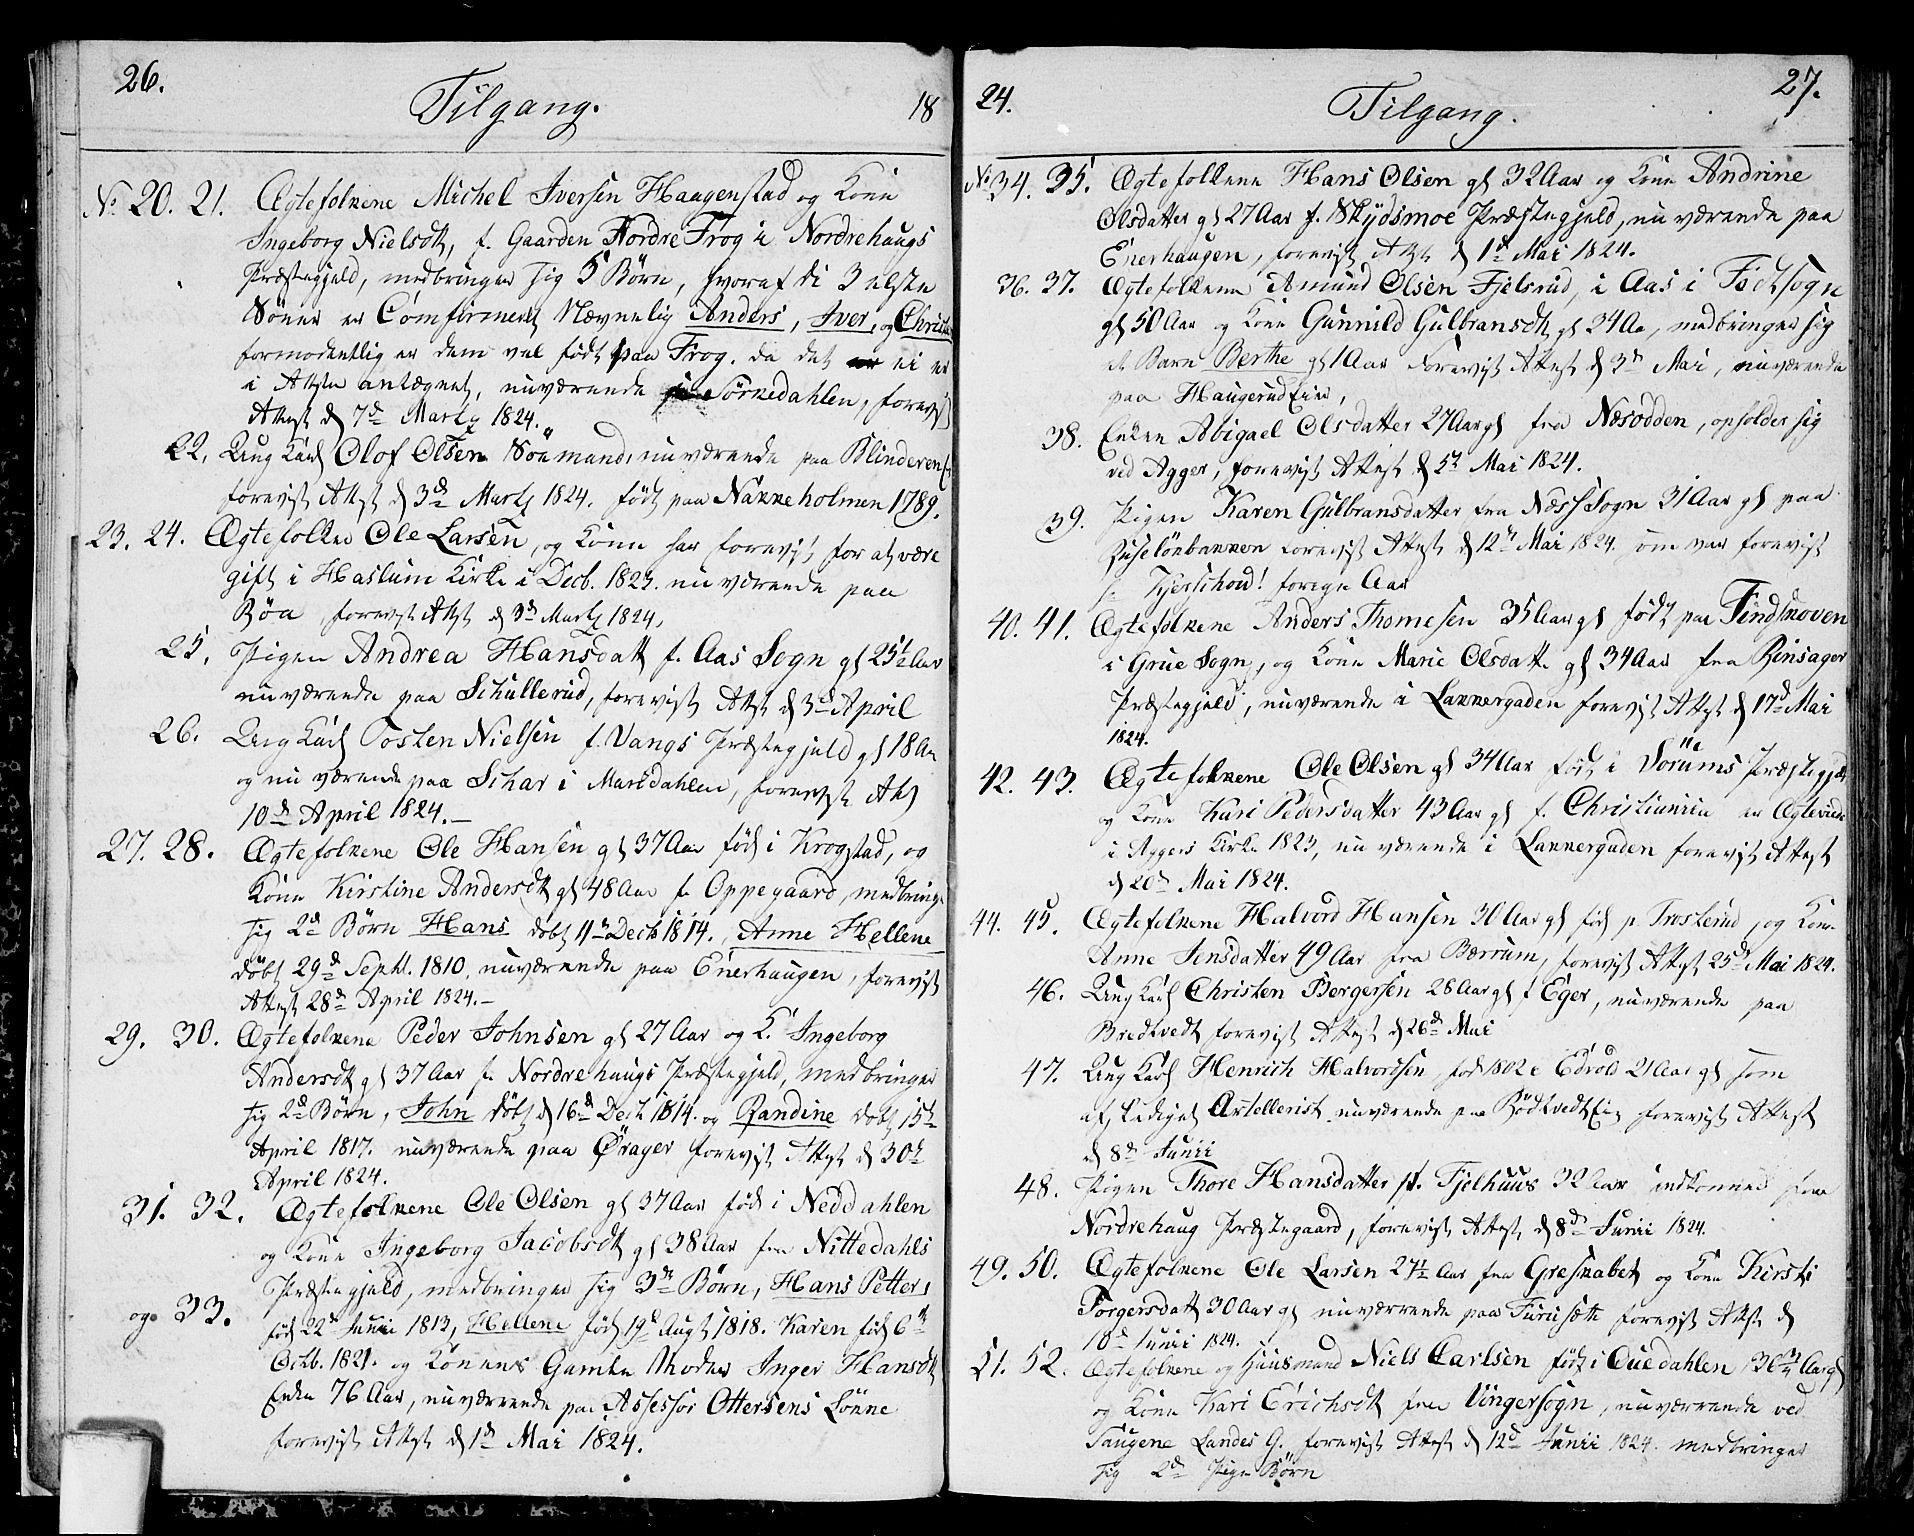 26.
Tilgang.
18
No 20. 21. Ægtefolkene Michel Iversen Haagenstad og Kone
Ingeborg Nielsdt, f. Gaarden Nordre Frog i Nordrehaugs
Præstegjeld, medbringer sig 5 Børn, hvoraf di 3 elste
Sönner er Comfirmeret Nævnelig Anders, Iver, og Christ
formodentlig er dem vel födt paa Frog, da det ei er
i Attesten antægnet, nuværende Sörkedahlen, forevist
Attest d 7de Marty 1824.
22. Ung Karl Olof Olsen Söemand, nuværende paa Blinderen
forevist Attest d 3de Marty 1824. födt paa Nakkeholmen 1789.
23. 24. Ægtefolken Ole Larsen, og Kone har forevist for at være
gift i Haslum Kirke i Decb. 1823. nuværende paa
Böa, forevist Attest d 3de Marty 1824.
25. Pigen Andrea Hansdatt f. Aas Sogn gl 25½ Aar
nuværende paa Schullerud, forevist Attest d 3de April
26. Ung Karl Tosten Nielsen f. Vangs Præstegjeld gl 18 Aar
og nu værende paa Schar i Maridahlen, forevist Att
10de April 1824.—
27. 28. Ægtefolkene Ole Hansen gl 37 Aar föd i Krogstad, og
Kone Kirstine Andersdt gl 48 Aar f. Oppegaard, medbring.
sig 2de Börn Hans döbt 11te Decb 1814. Anne Hellene
döbt 29de Septbl. 1810, nuværende paa Enerhaugen, forevist
Attest 28de April 1824.—
29. 30. Ægtefolkene Peder Johnsen gl 27 Aar og K. Ingeborg
Andersdt gl 37 Aar f. Nordrehaugs Præstegjeld, medbringer
sig 2de Börn, John döbt d 16de Decb 1814. og Randine döbt 15te
April 1817. nuværende paa Örager forevist Attest d 30te
April 1824.
31. 32. Ægtefolkene Ole Olsen gl 37 Aar föd i Neddahlen
og Kone Ingeborg Jacobsdt gl 38 Aar fra Nittedahls
Præstegjeld, medbringer sig 3de Börn, Hans Petter,
og 33. föd 22de Junii 1813, Hellene föd 19de Augt 1818. Karen föd 6te
Octb. 1821. og Konens Gamle Moder Inger Hansdt
Enke 76 Aar, nuværende paa Assessor Ottersens Lönne
forevist Attest d 1de Mai 1824.
24.
Tilgang.
27.
No 34. 35. Ægtefolkene Hans Olsen gl 32 Aar og Kone Andrine
Olsdatter gl 27 Aar f. Skydsmoe Præstegjeld, nuværende paa
Enerhaugen, forevist Attest d 1de Mai 1824.
36. 37. Ægtefolkene Amund Olsen Fjelsrud, i Aas i Fedt sogn
gl 50 Aar og Kone Gunnild Gulbransdt gl 34 Aa, medbringer sig
et Barn Berthe gl 1 Aar forevist Attest d 3de Mai, nuværende
paa Haugerud Eier,
38. Enken Abigael Olsdatter 27 Aar gl fra Næsodden, opholder sig
ved Agger, forevist Attest d 5te Mai 1824.
39. Pigen Karen Gulbransdatter fra Næss Sogn 31 Aar gl paa
forevist Attest d 12te Mai 1824. om var forevist
f. Tjerschow! forrige Aar
40. 41. Ægtefolkene Anders Thomesen 35 Aar gl födt paa Findskoven
i Grue Sogn, og Kone Marie Olsdatt gl 34 Aar fra Rinsager
Præstegjeld, nuværende i Lakkergaden forevist Attest d 17de Mai
1824.
42. 43. Ægtefolkene Ole Olsen gl 34 Aar födt i Sörums Præstegjeld
og Kone Kari Pedersdatter 43 Aar gl f. Christiania er Ægteviede
i Aggers Kirke 1823, nu værende i Lakkergaden forevist Attest
d 20de Mai 1824.
44. 45. Ægtefolkene Halvord Hansen 30 Aar gl föd p. Trosterud, og Kone
Anne Jensdatter 49 Aar fra Bærrum, forevist Attest 25de Mai 1824.
46. Ung Karl Christen Bergersen 28 Aar gl f Eger, nuværende paa
Bredtvedt forevist Attest d 26de Mai
47. Ung Karl Henrich Halvorsen, föd 1802 i Edröd 21 Aar gl som
afskediget Artellerist, nuværende paa Bödtvedt Eie forevist Attest
d 8de Junii
48. Pigen Thore Hansdatter pl. Fjelhuus 32 Aar indkommed fra
Nordrehaug Præstegaard, forevist Attest, d 8de Junii 1824.
49. 50. Ægtefolkene Ole Larsen 27½ Aar fra Greskabet og Kone Kirsti
Torgersdatt 30 Aar gl nuværrende paa Furusett forevist Attest d
10de Junii 1824.
51. 52. Ægtefolkene og Huusmand Niels Carlsen födt i Ouedahlen 36 Aar gl
og Kone Kari Erichsdt fra Ungersogn, nuværrende ved
Saugene Landes G. forevist Attest d 12de Junii 1824. medbringer
sig 2de Pige Börn